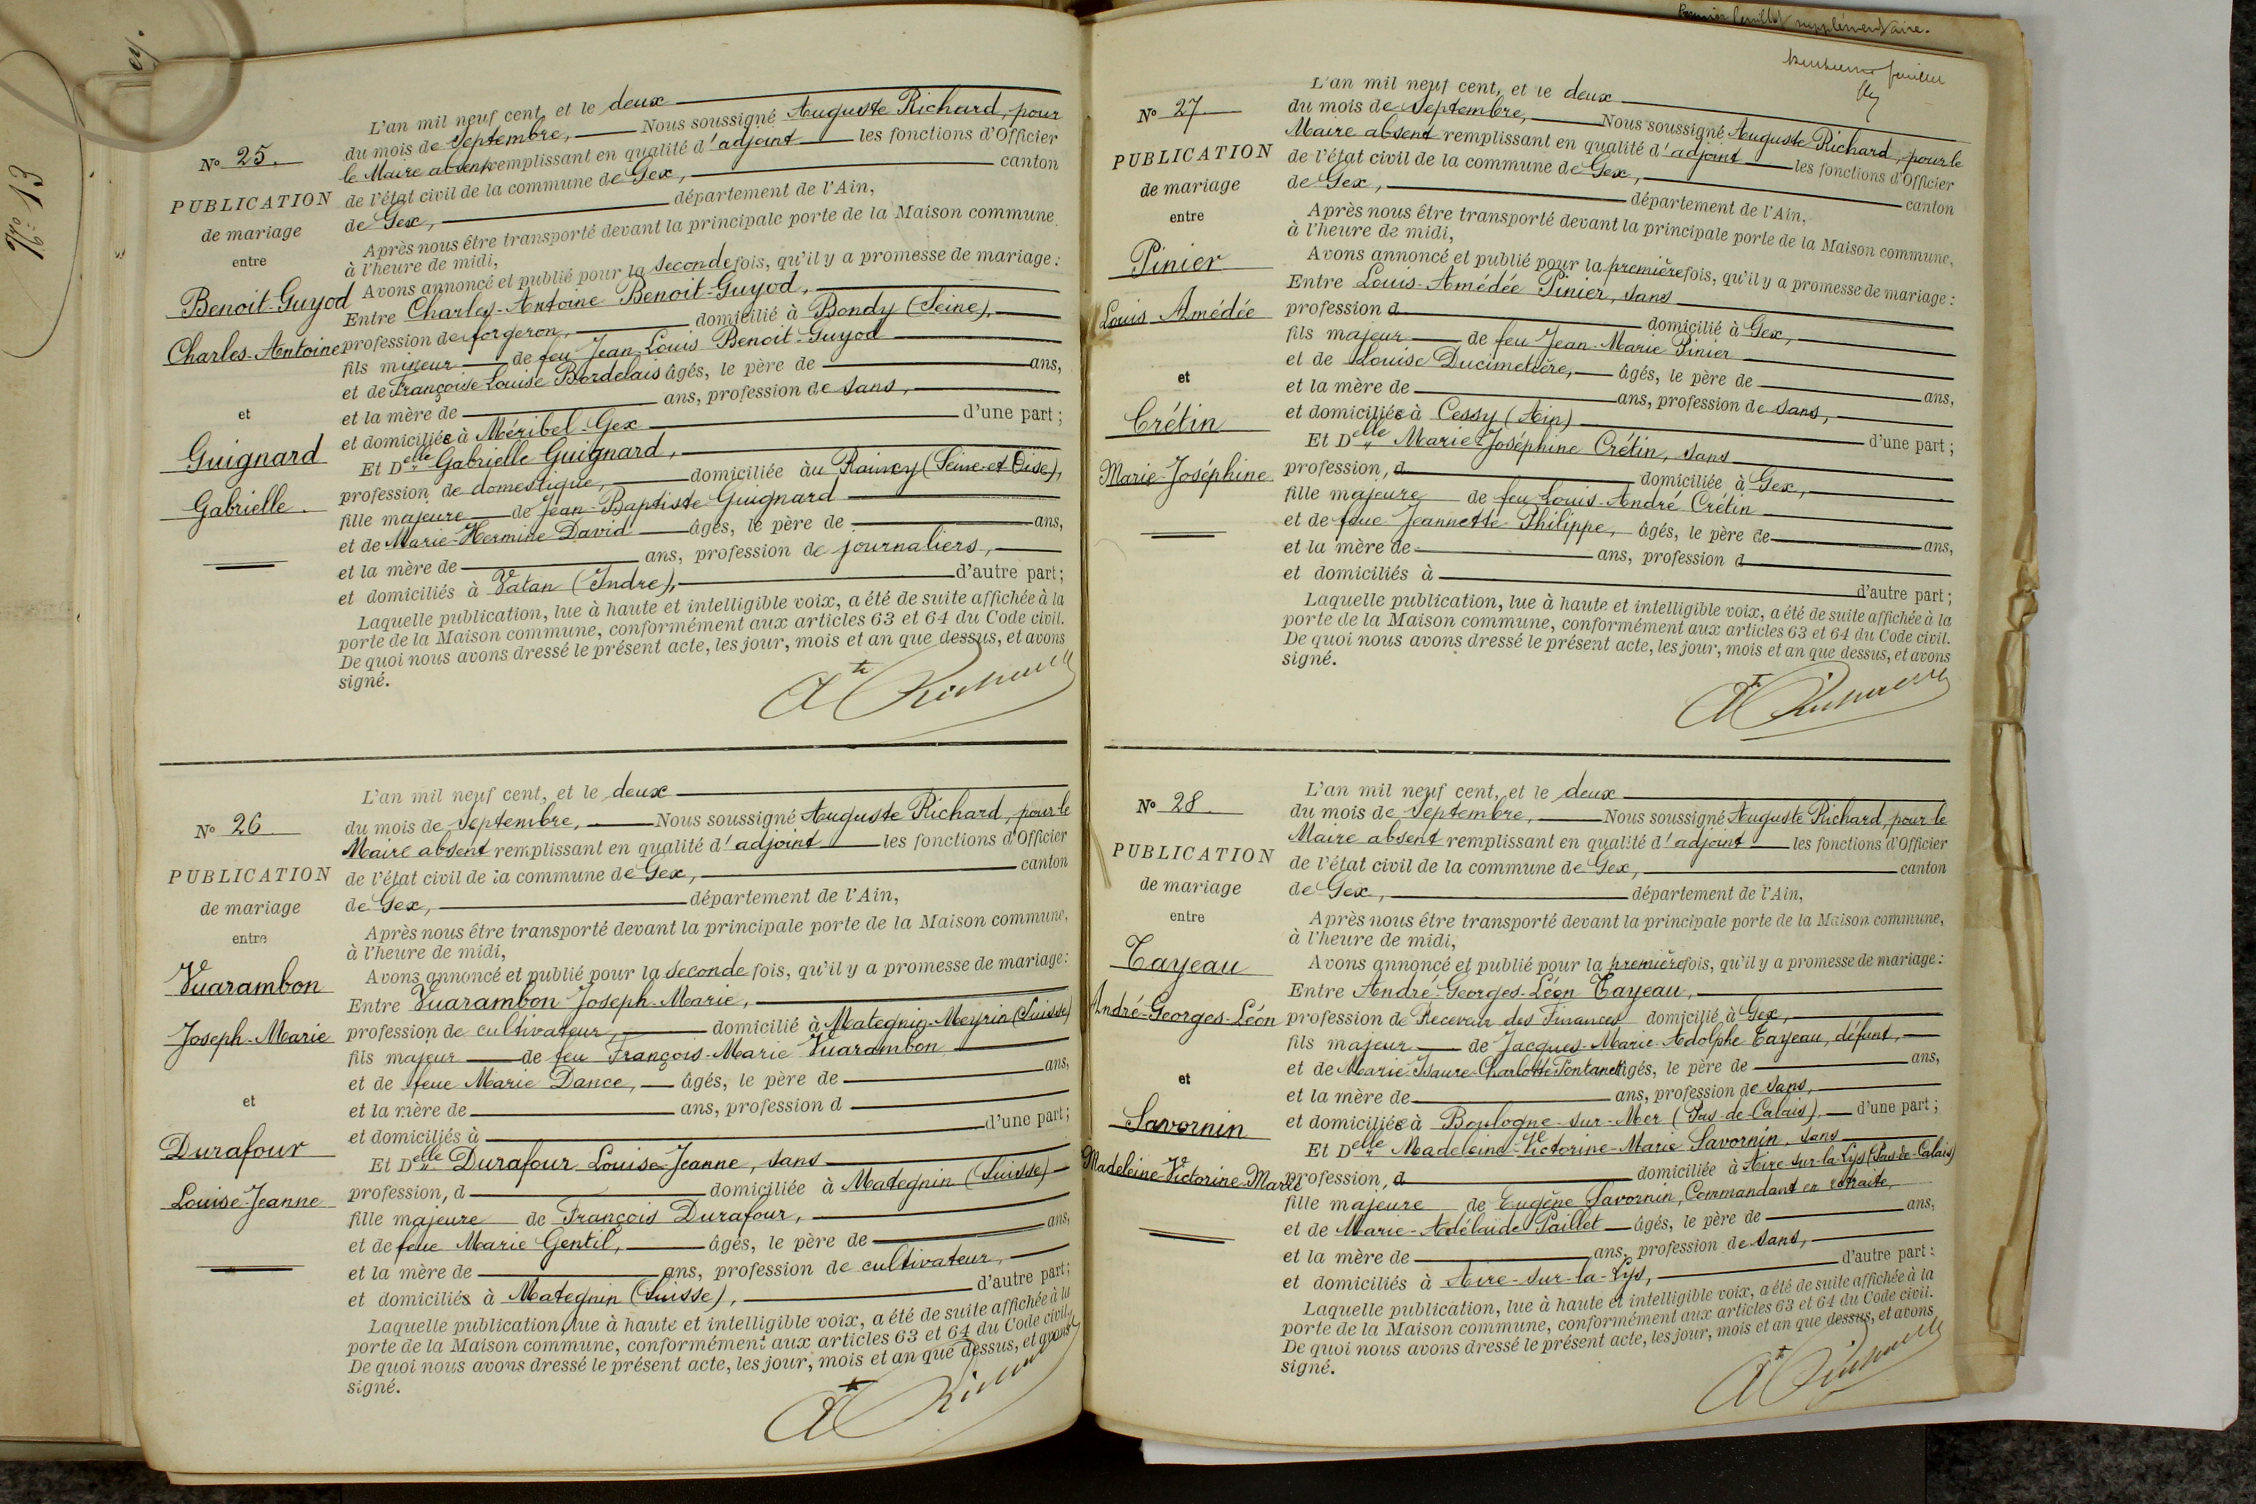 ey.
No 13
No 25.
PUBLICATION
de mariage
entre
Benoit-Guyod
Charles-Antoine
et
Guignard
Gabrielle.
L'an mil neuf cent, et le deux
du mois de Septembre, Nous soussigné Auguste Richard, pour
le Maire absent remplissant en qualité d'adjoint les fonctions d'Officier
de l'état civil de la commune de Gex, canton
de Gex, département de l'Ain,
Après nous être transporté devant la principale porte de la Maison commune
à l'heure de midi,
Avons annoncé et publié pour la seconde fois, qu'il y a promesse de mariage:
Entre Charles-Antoine Benoit-Guyod,
profession de forgeron, domicilié à Bondy (Seine),
fils mineur de feu Jean-Louis Benoit-Guyod
et de Françoise Louise Bordelais âgés, le père de ans,
et la mère de ans, profession de sans,
et domiciliée à Méribel-Gex d'une part;
Et Delle Gabrielle Guignard,
profession de domestique, domiciliée au Raincy (Seine-et-Oise),
fille majeure de Jean-Baptiste Guignard
et de Marie-Hermine David âgés, le père de ans,
et la mère de ans, profession de journaliers,
et domiciliés à Vatan (Indre), d'autre part;
Laquelle publication, lue à haute et intelligible voix, a été de suite affichée à la
porte de la Maison commune, conformément aux articles 63 et 64 du Code civil.
De quoi nous avons dressé le présent acte, les jour, mois et an que dessus, et avons
signé.
Ate Richard
No 26
PUBLICATION
de mariage
entre
Vuarambon
Joseph-Marie
et
Durafour
Louise-Jeanne
L'an mil neuf cent, et le deux
du mois de Septembre, Nous soussigné Auguste Richard, pour le
Maire absent remplissant en qualité d'adjoint les fonctions d'Officier
de l'état civil de la commune de Gex, canton
de Gex, département de l'Ain,
Après nous être transporté devant la principale porte de la Maison commune,
à l'heure de midi,
Avons annoncé et publié pour la seconde fois, qu'il y a promesse de mariage:
Entre Vuarambon Joseph-Marie,
profession de cultivateur, domicilié à Mategnin-Meyrin (Suisse)
fils majeur de feu François-Marie Vuarambon
et de feue Marie Dance, âgés, le père de ans,
et la mère de ans, profession d
et domiciliés à d'une part;
Et Delle Durafour Louise-Jeanne, sans
profession, d domiciliée à Mategnin (Suisse)
fille majeure de François Durafour,
et de feue Marie Gentil, âgés, le père de ans,
et la mère de ans, profession de cultivateur,
et domiciliés à Mategnin (Suisse), d'autre part;
Laquelle publication, lue à haute et intelligible voix, a été de suite affichée à la
porte de la Maison commune, conformément aux articles 63 et 64 du Code civil.
De quoi nous avons dressé le présent acte, les jour, mois et an que dessus, et avons
signé.
Ate Richard
Premier feuillet supplémentaire.
feuillet
No 27
PUBLICATION
de mariage
entre
Pinier
Louis Amédée
et
Crétin
Marie-Joséphine
L'an mil neuf cent, et le deux
du mois de Septembre, Nous soussigné Auguste Richard, pour le
Maire absent remplissant en qualité d'adjoint les fonctions d'Officier
de l'état civil de la commune de Gex, canton
de Gex, département de l'Ain,
Après nous être transporté devant la principale porte de la Maison commune,
à l'heure de midi,
Avons annoncé et publié pour la première fois, qu'il y a promesse de mariage:
Entre Louis-Amédée Pinier, sans
profession d domicilié à Gex,
fils majeur de feu Jean-Marie Pinier
et de Louise Ducimetière, âgés, le père de ans,
et la mère de ans, profession de sans,
et domiciliée à Cessy (Ain) d'une part;
Et Delle Marie-Joséphine Crétin, sans
profession, d domiciliée à Gex,
fille majeure de feu Louis-André Crétin
et de feue Jeannette Philippe, âgés, le père de ans,
et la mère de ans, profession d
et domiciliés à d'autre part;
Laquelle publication, lue à haute et intelligible voix, a été de suite affichée à la
porte de la Maison commune, conformément aux articles 63 et 64 du Code civil.
De quoi nous avons dressé le présent acte, les jour, mois et an que dessus, et avons
signé.
Ate Richard
No 28
PUBLICATION
de mariage
entre
Tayeau
André-Georges-Léon
et
Savornin
Madeleine-Victorine-Marie
L'an mil neuf cent, et le deux
du mois de Septembre, Nous soussigné Auguste Richard, pour le
Maire absent remplissant en qualité d'adjoint les fonctions d'Officier
de l'état civil de la commune de Gex, canton
de Gex, département de l'Ain,
Après nous être transporté devant la principale porte de la Maison commune,
à l'heure de midi,
Avons annoncé et publié pour la première fois, qu'il y a promesse de mariage:
Entre André-Georges-Léon Tayeau,
profession de Receveur des Finances domicilié à Gex,
fils majeur de Jacques-Marie-Adolphe Tayeau, défunt,
et de Marie-Isaure-Charlotte Fontanel âgés, le père de ans,
et la mère de ans, profession de sans,
et domiciliée à Boulogne-sur-Mer (Pas-de-Calais), d'une part;
Et Delle Madeleine-Victorine-Marie Savornin, sans
profession, d domiciliée à Aire-sur-la-Lys (Pas-de-Calais)
fille majeure de Eugène Savornin, Commandant en retraite,
et de Marie-Adélaïde Paillet âgés, le père de ans,
et la mère de ans, profession de sans,
et domiciliés à Aire-sur-la-Lys, d'autre part;
Laquelle publication, lue à haute et intelligible voix, a été de suite affichée à la
porte de la Maison commune, conformément aux articles 63 et 64 du Code civil.
De quoi nous avons dressé le présent acte, les jour, mois et an que dessus, et avons
signé.
Ate Richard